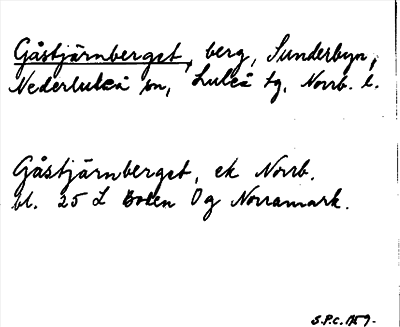 Gåstjärnberget, berg, Sunderbyn,
Nederluleå sn, Luleå tg, Norrb. l.
Gåstjärnberget, ek Norrb.
bl. 25 L Boden 0g Norramark.
S.P.C. 1959.